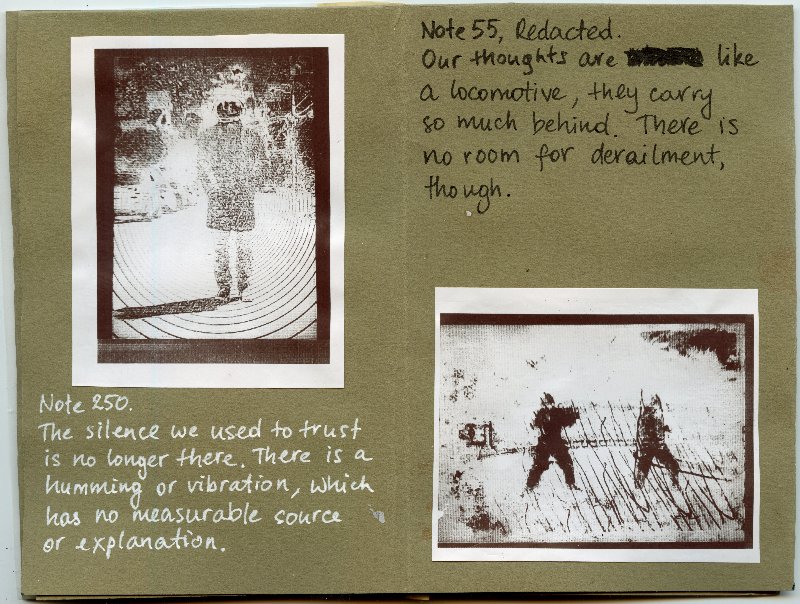 Note 250.
The silence we used to trust
is no longer there. There is a
humming or vibration, which
has no measurable source
or explanation.
Note 55, Redacted.
Our thoughts are like
a locomotive, they carry
so much behind. There is
no room for derailment,
though.